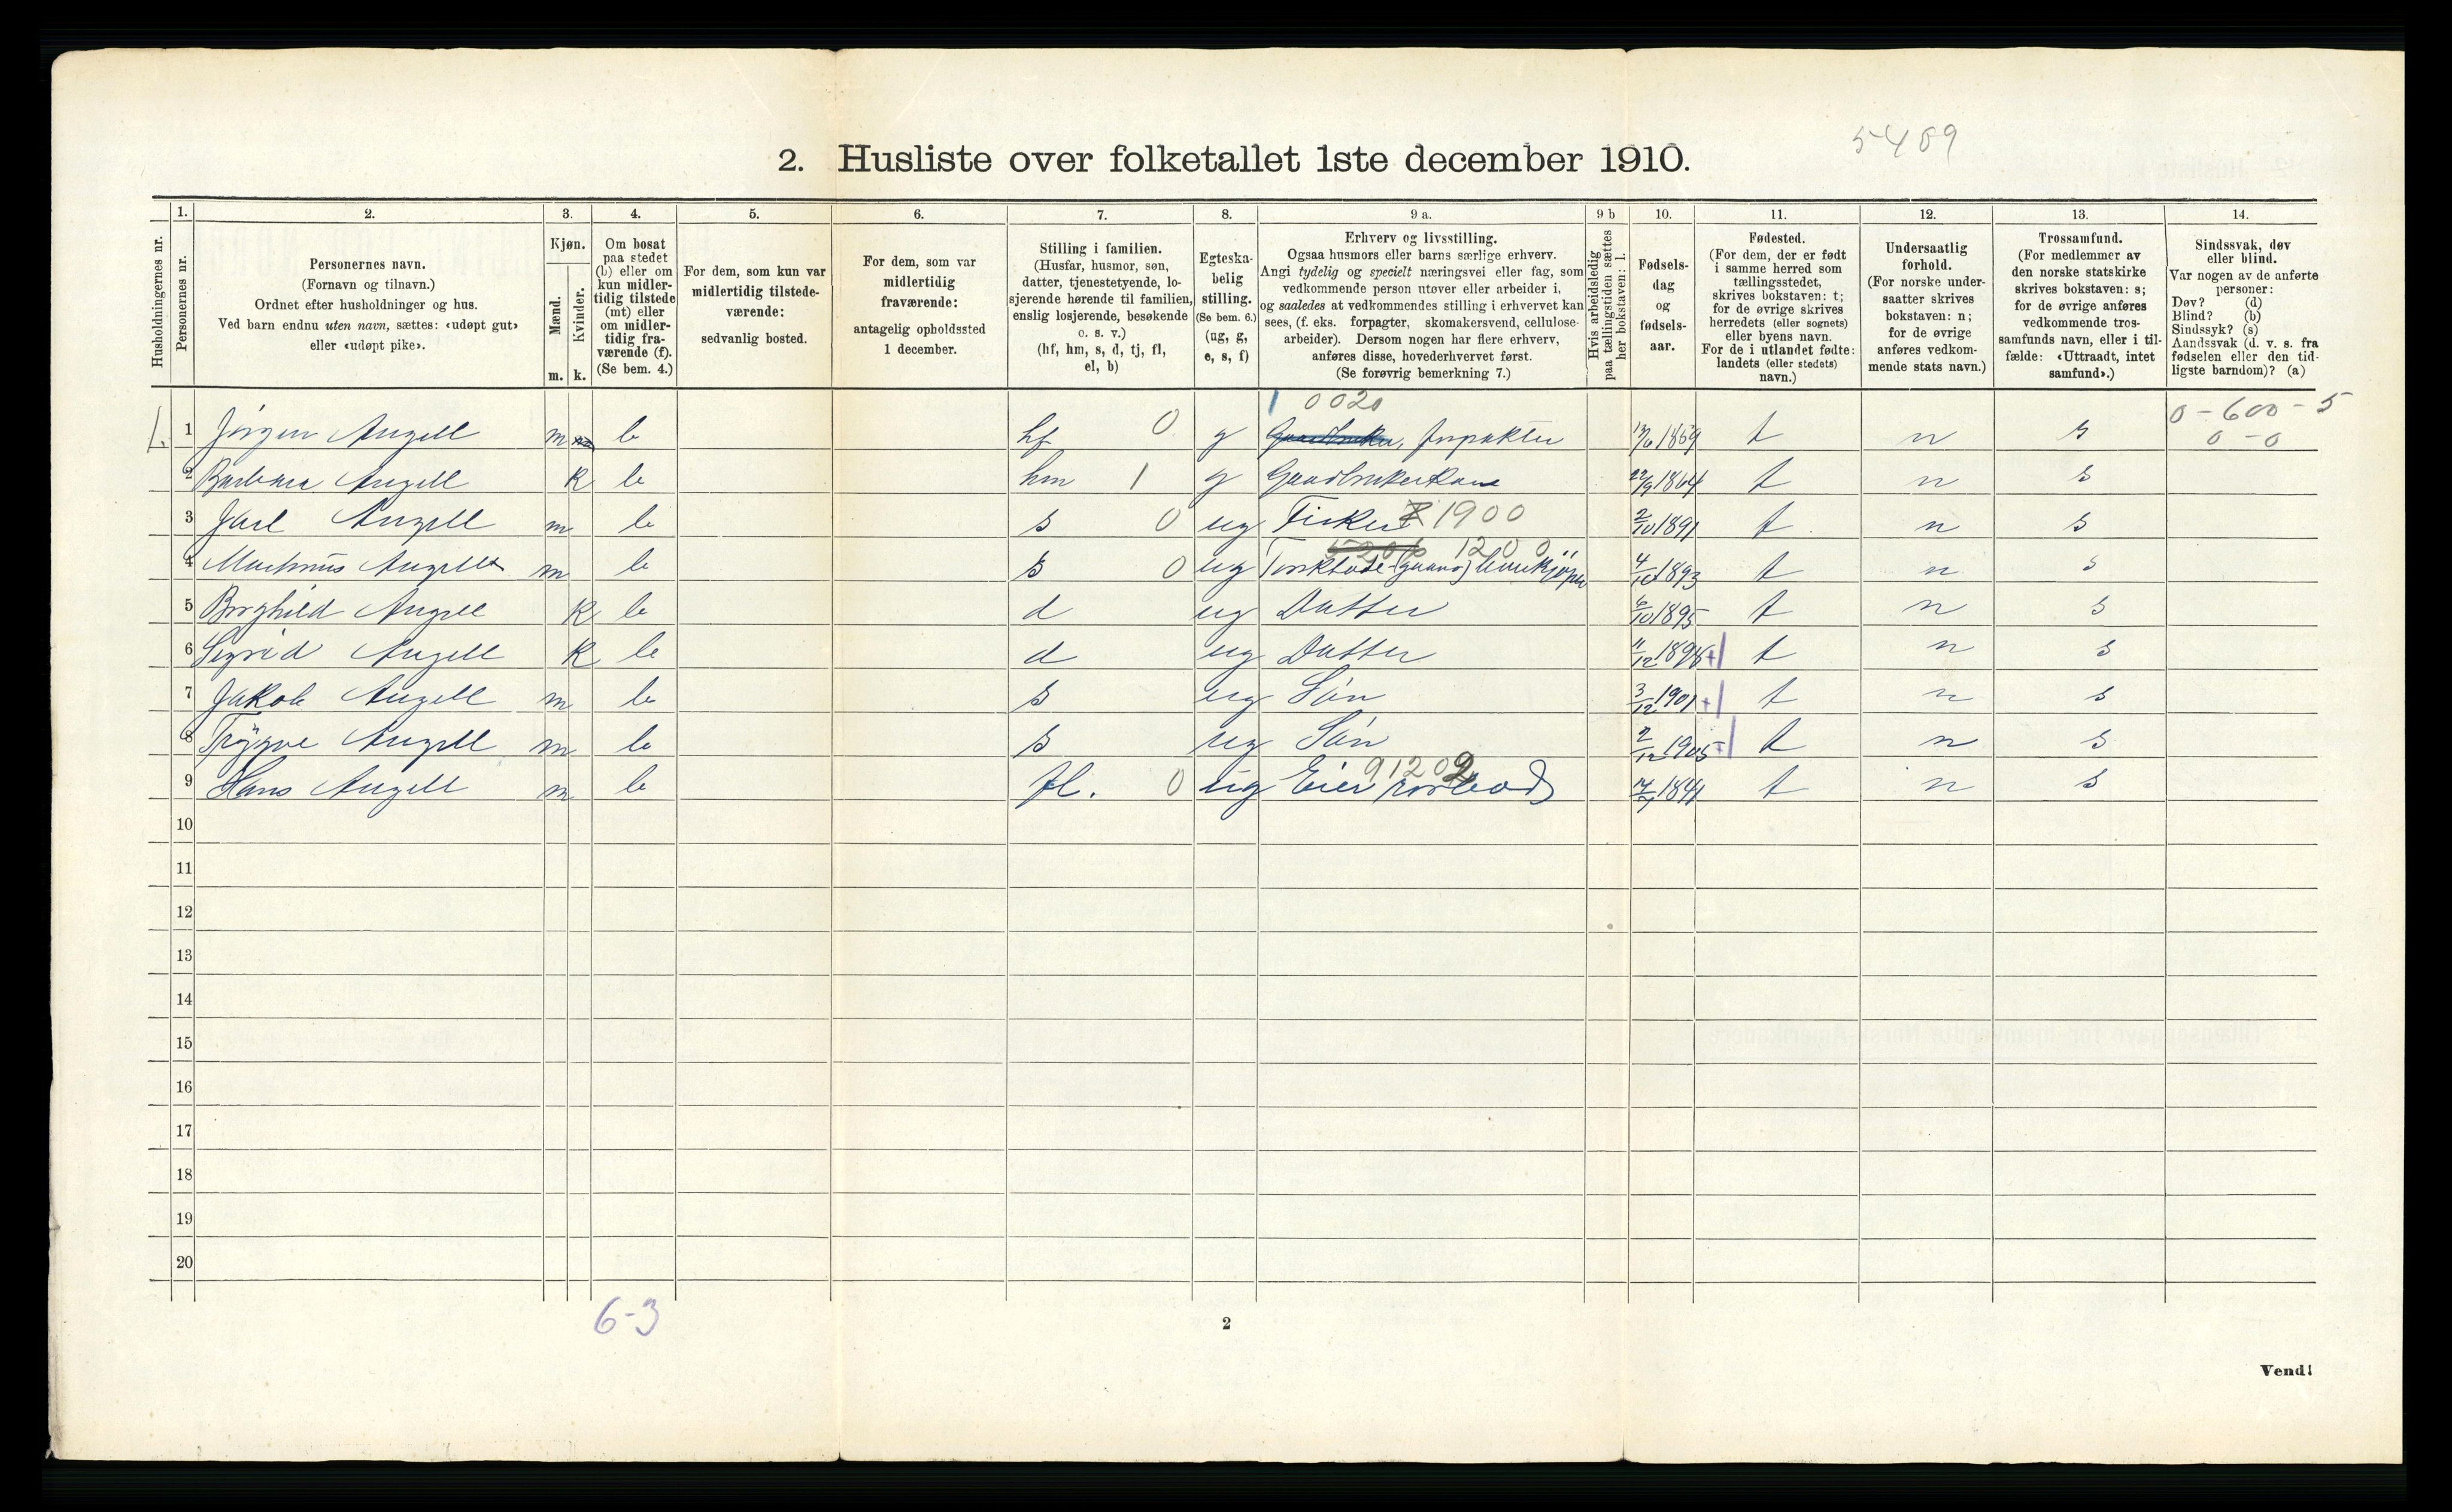 5489
2. Husliste over folketallet 1ste december 1910.
Husholdningernes nr.
1.
Personernes nr.
2.
Personernes navn.
(Fornavn og tilnavn.)
Ordnet efter husholdninger og hus.
Ved barn endnu uten navn, sættes: «udøpt gut»
eller «udøpt pike».
3.
Kjøn.
Mænd.
Kvinder.
m. k.
4.
Om bosat
paa stedet
(b) eller om
kun midler-
tidig tilstede
(mt) eller
om midler-
tidig fra-
værende (f).
(Se bem. 4.)
5.
For dem, som kun var
midlertidig tilstede-
værende:
sedvanlig bosted.
6.
For dem, som var
midlertidig
fraværende:
antagelig opholdssted
1 december.
7.
Stilling i familien.
(Husfar, husmor, søn,
datter, tjenestetyende, lo-
sjerende hørende til familien,
enslig losjerende, besøkende
o. s. v.)
(hf, hm, s, d, tj, fl,
el, b)
8.
Egteska-
belig
stilling.
(Se bem. 6.)
(ug, g,
e, s, f)
9 a.
Erhverv og livsstilling.
Ogsaa husmors eller barns særlige erhverv.
Angi tydelig og specielt næringsvei eller fag, som
vedkommende person utøver eller arbeider i,
og saaledes at vedkommendes stilling i erhvervet kan
sees, (f. eks. forpagter, skomakersvend, cellulose-
arbeider). Dersom nogen har flere erhverv,
anføres disse, hovederhvervet først.
(Se forøvrig bemerkning 7.)
9 b
Hvis arbeidsledig
paa tællingstiden sættes
her bokstaven: l.
10.
Fødsels-
dag
og
fødsels-
aar.
11.
Fødested.
(For dem, der er født
i samme herred som
tællingsstedet,
skrives bokstaven: t;
for de øvrige skrives
herredets (eller sognets)
eller byens navn.
For de i utlandet fødte:
landets (eller stedets)
navn.)
12.
Undersaatlig
forhold.
(For norske under-
saatter skrives
bokstaven: n;
for de øvrige
anføres vedkom-
mende stats navn.)
13.
Trossamfund.
(For medlemmer av
den norske statskirke
skrives bokstaven: s;
for de øvrige anføres
vedkommende tros-
samfunds navn, eller i til-
fælde: «Uttraadt, intet
samfund».)
14.
Sindssvak, døv
eller blind.
Var nogen av de anførte
personer:
Døv? (d)
Blind? (b)
Sindssyk? (s)
Aandssvak (d. v. s. fra
fødselen eller den tid-
ligste barndom)? (a)
1 0020 0-600-5
1. 1 Jörgen Angell m b hf 0 g Gaardbruker, Inspektør 1859 t n s 0-0
2 Barbara Angell k b hm 1 g Gaardbrukerkone 22/9 1864 t n s
3 Jarl Angell m b s 0 ug Fisker 1900 2/10 1891 t n s
1200
4 Martinus Angell m b s 0 ug 4/10 1893 t n s
5 Borghild Angell k b d ug Datter 6/10 1895 t n s
6 Sigrid Angell k b d ug Datter 11/12 1898 +1 t n s
7 Jakob Angell m b s ug Sön 3/12 1901 +1 t n s
8 Tryggve Angell m b s ug Sön 2/12 1905 +1 t n s
91202
9 Hans Angell m b fl. 0 ug Eier rorbod 1841 t n s
10
11
12
13
14
15
16
17
18
19
20
6-3
2
Vend!